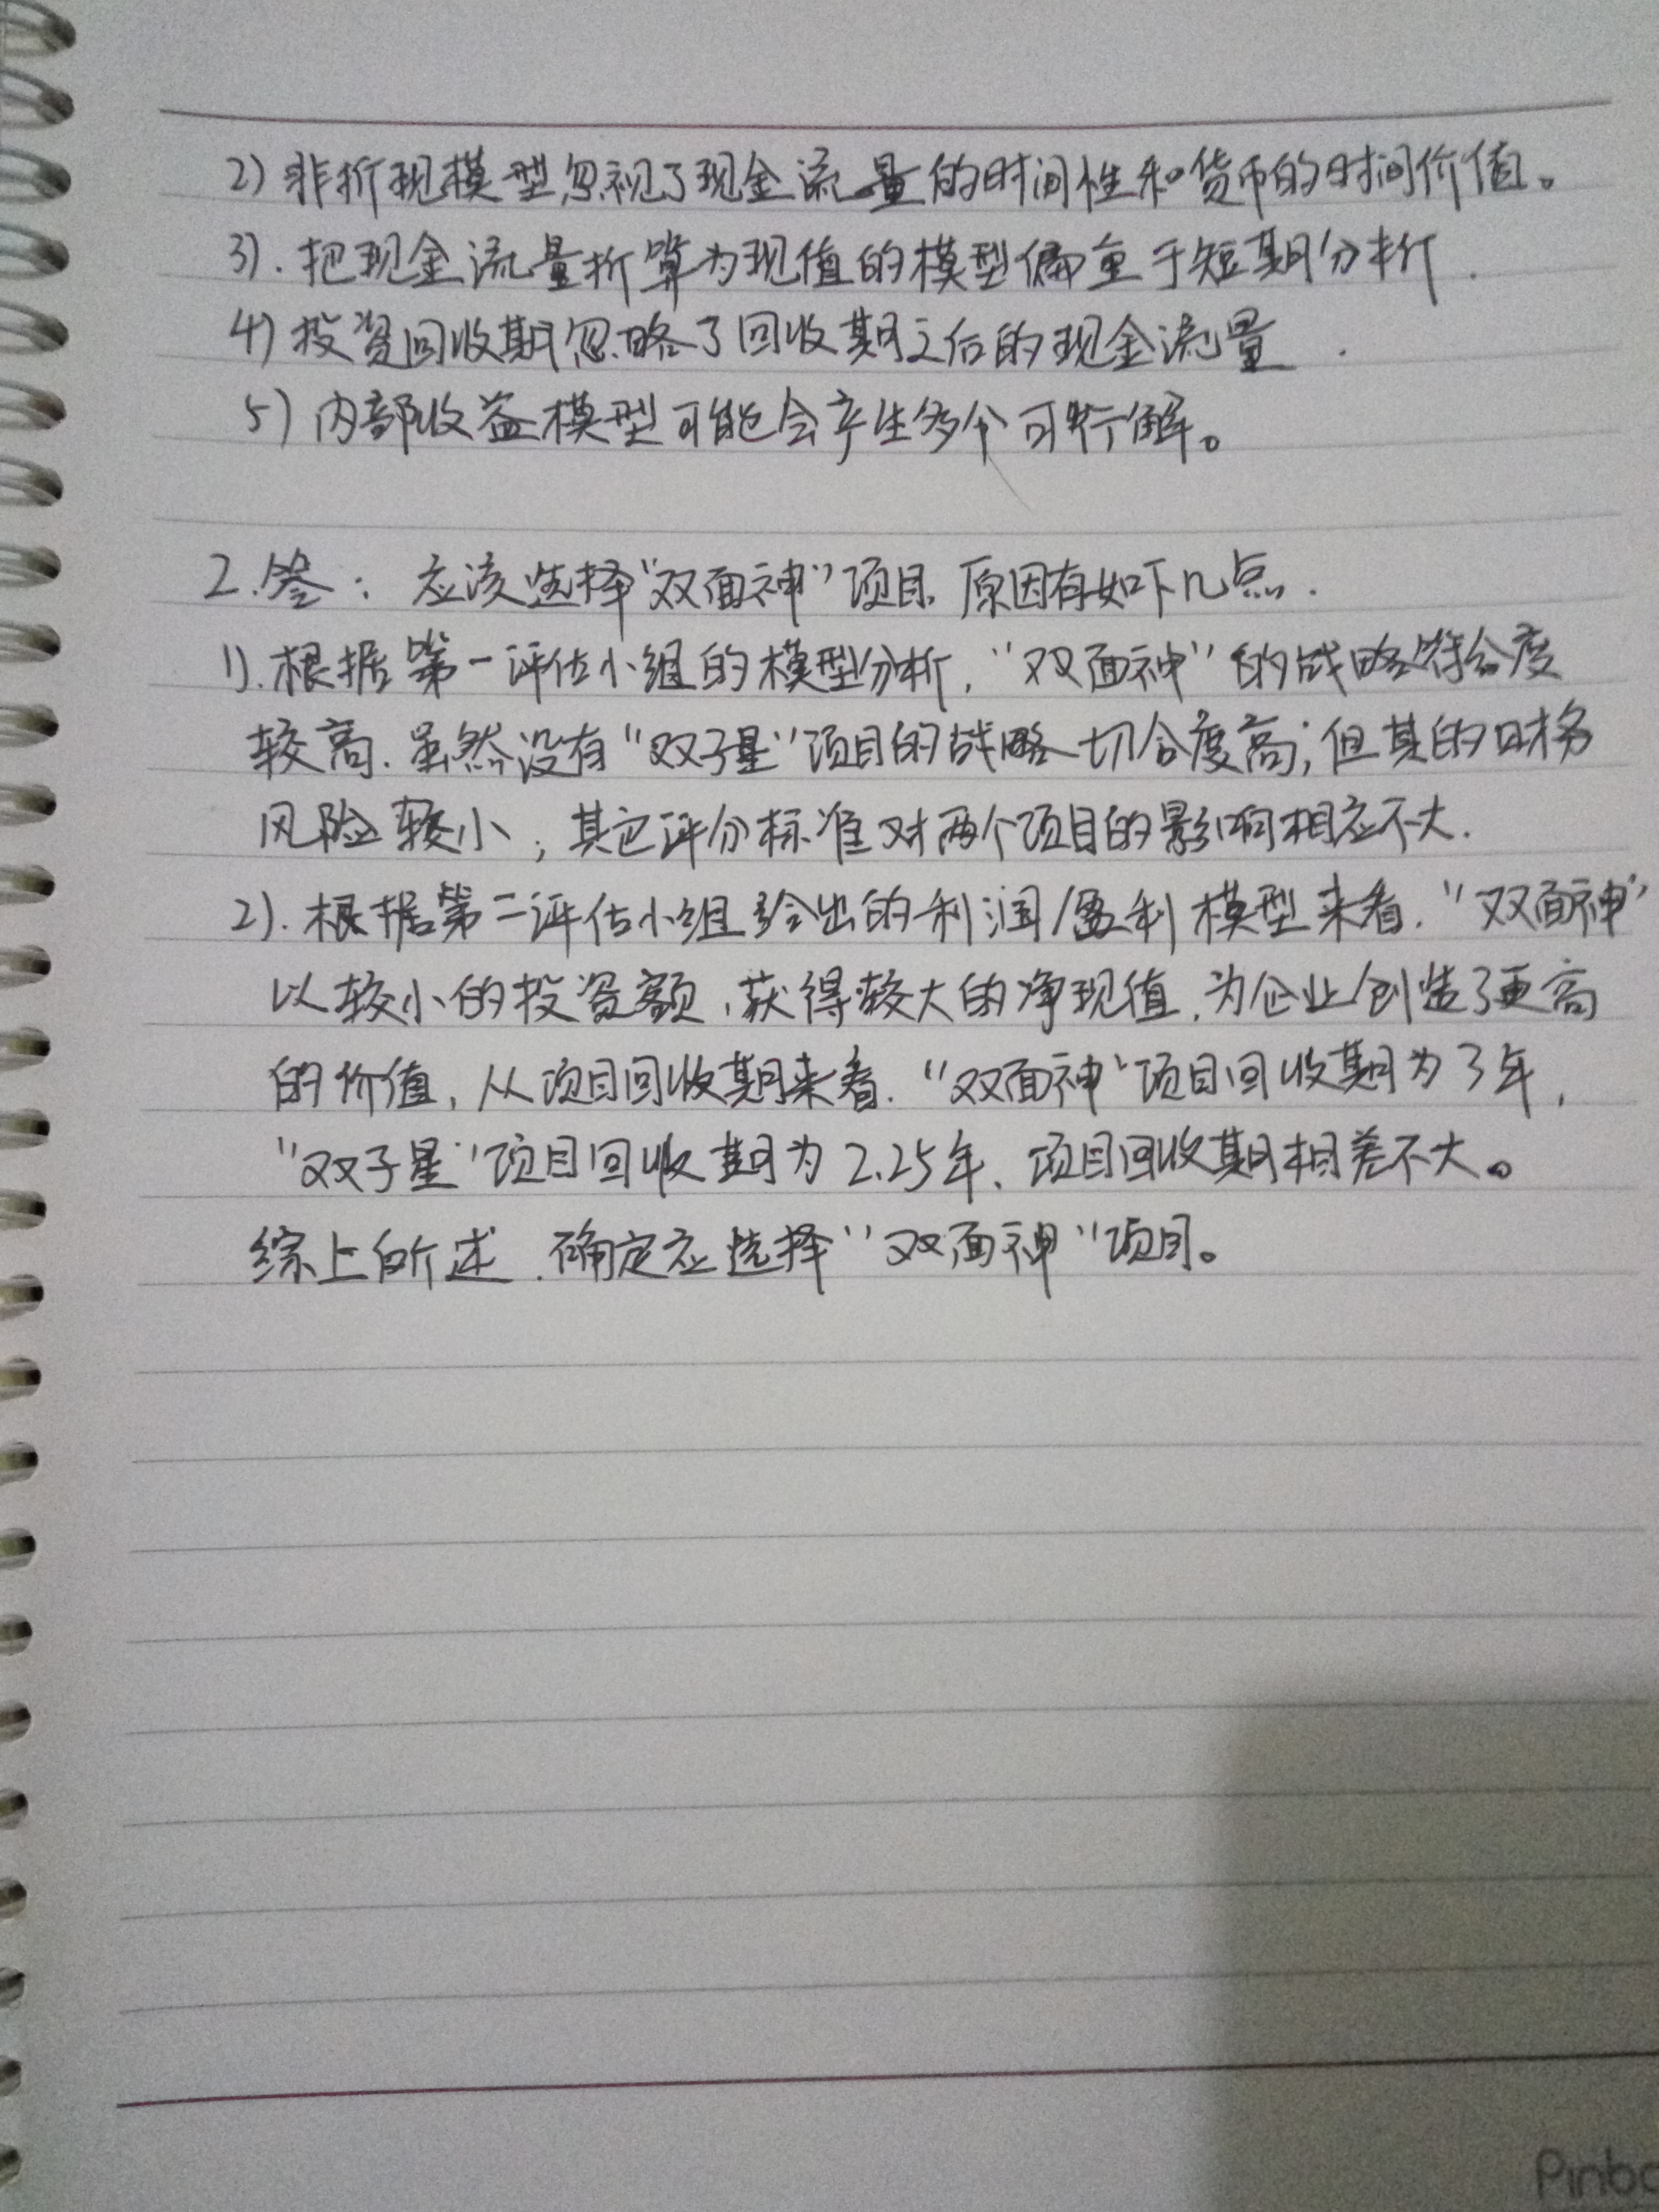 2) 非折现模型忽视了现金流量的时间性和货币的时间价值。
3). 把现金流量折算为现值的模型偏重于短期分析.
4) 投资回收期忽略了回收期之后的现金流量.
5) 内部收益模型可能会产生多个可行解。
2. 答: 应该选择“双面神”项目, 原因有如下几点.
1). 根据第一评估小组的模型分析, “双面神”的战略符合度
较高. 虽然没有“双子星”项目的战略切合度高; 但其的财务
风险较小; 其它评分标准对两个项目的影响相应不大.
2). 根据第二评估小组给出的利润/盈利模型来看. “双面神”
以较小的投资额, 获得较大的净现值, 为企业创造了更高
的价值, 从项目回收期来看. “双面神”项目回收期为3年,
“双子星”项目回收期为2.25年、项目回收期相差不大。
综上所述, 确定应选择“双面神”项目。
Pinbo